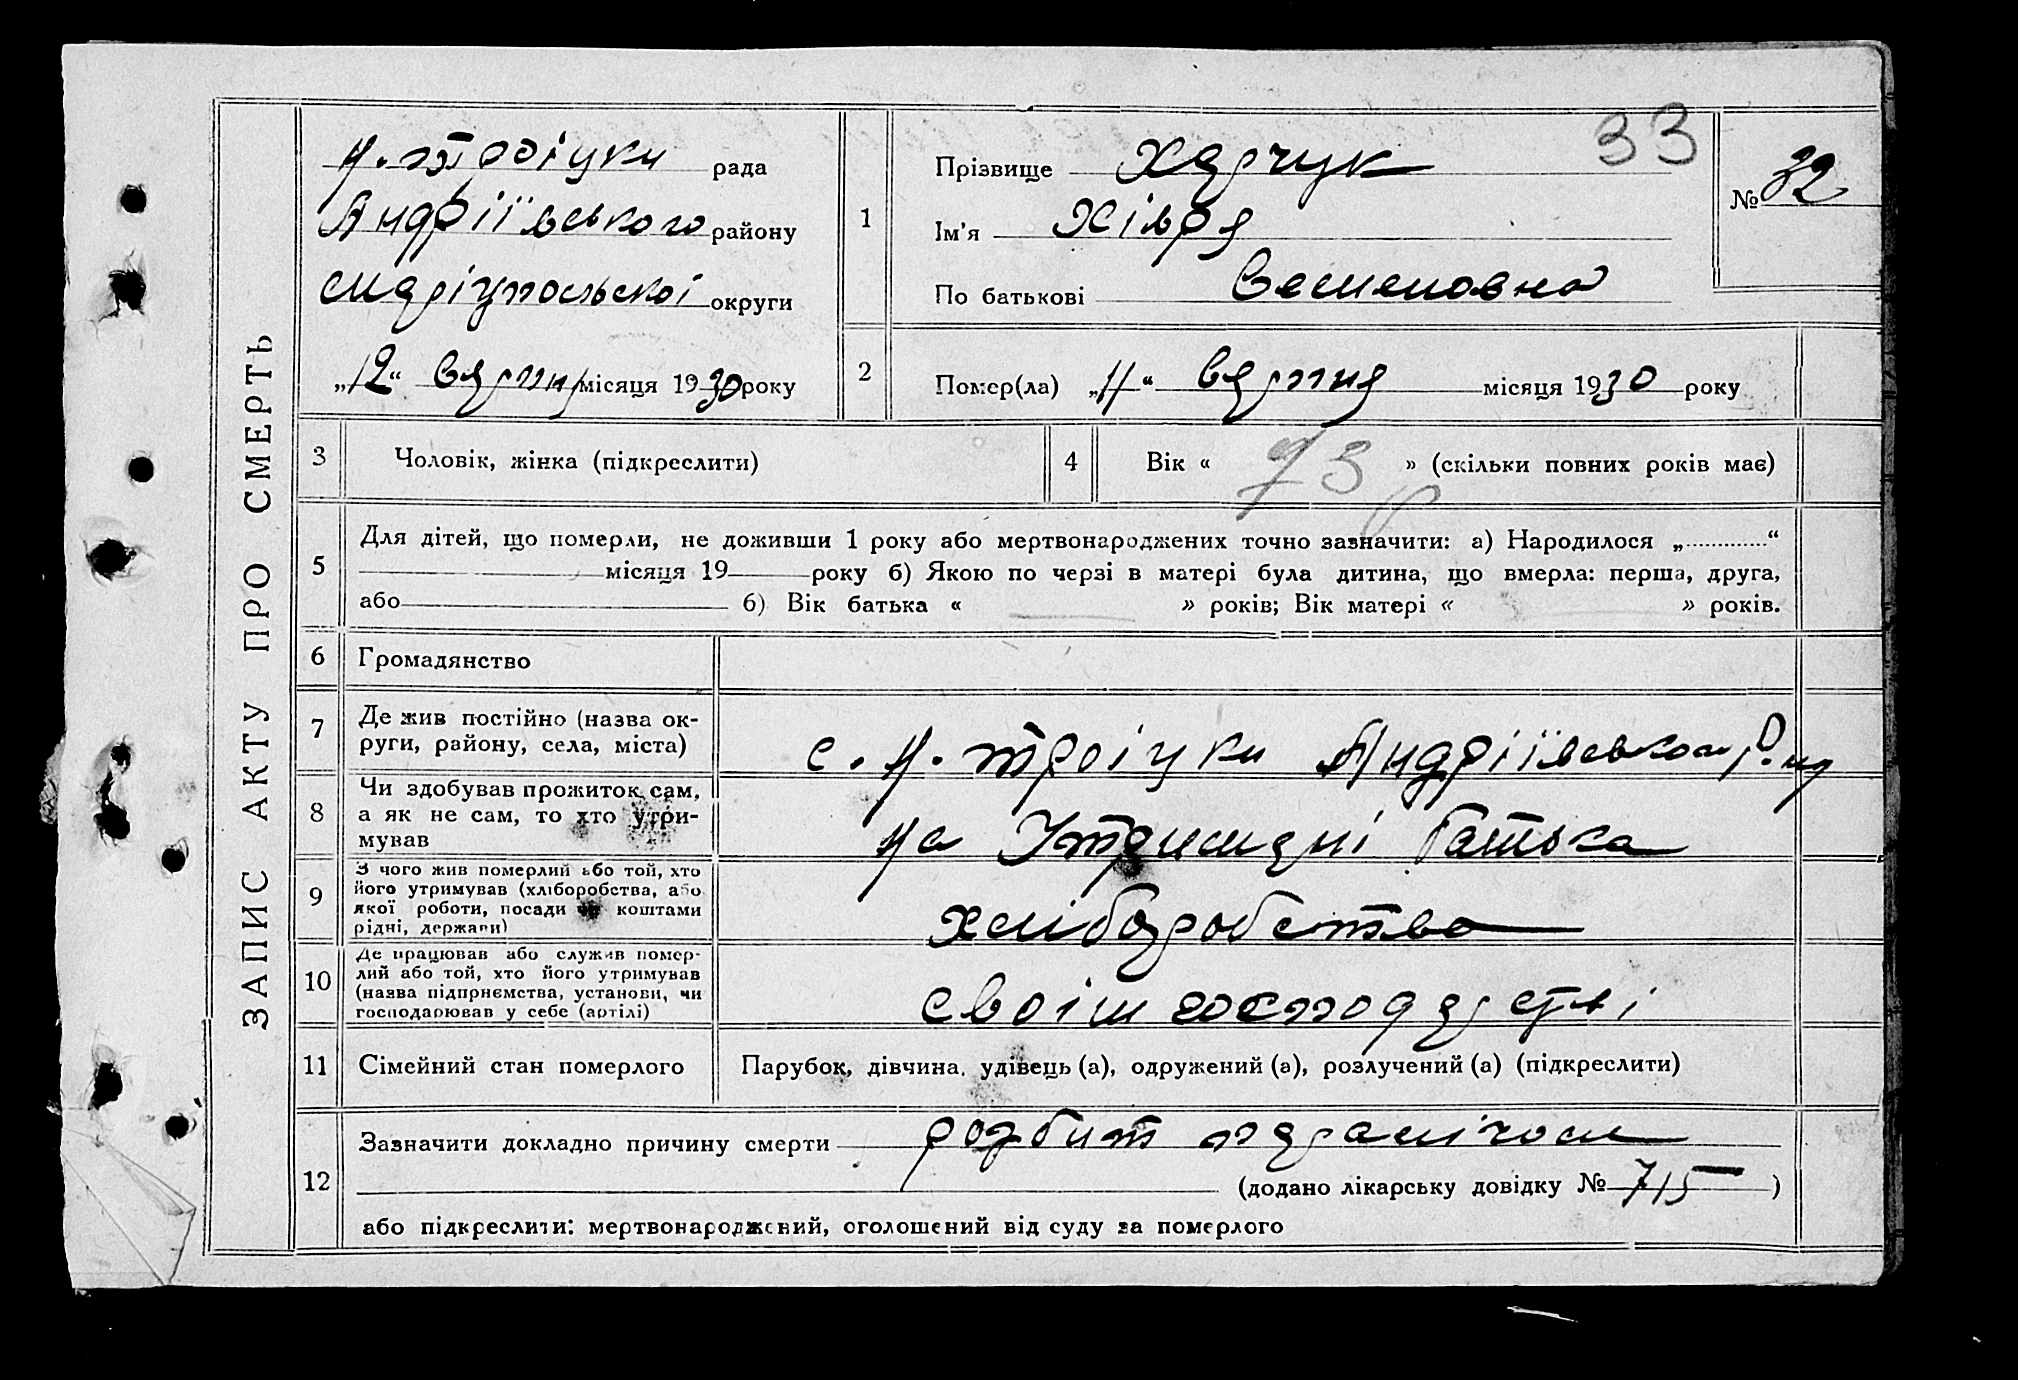 ЗАПИС АКТУ ПРО СМЕРТЬ
н. троіцки рада
Андріївського району
маріупольської округи
„12“ вярпня місяця 1930 року
33
1
Прізвище Харчук
Ім'я Хівря
По батькові Семеновна
№ 32
2
Помер(ла) „11“ вярпня місяця 1930 року
3
Чоловік, жінка (підкреслити)
4
Вік « 73 » (скільки повних років має)
5
Для дітей, що померли, не доживши 1 року або мертвонароджених точно зазначити: а) Народилося „............“
місяця 19 року б) Якою по черзі в матері була дитина, що вмерла: перша, друга,
або б) Вік батька « » років; Вік матері « » років.
6
Громадянство
7
Де жив постійно (назва ок-
руги, району, села, міста)
с. н. троіцки Андріївського Р.ну
8
Чи здобував прожиток сам,
а як не сам, то хто утри-
мував
на Утримані батька
9
З чого жив померлий або той, хто
його утримував (хліборобства, або
якої роботи, посади чи коштами
рідні, держави)
хліборобства
10
Де працював або служив помер-
лий або той, хто його утримував
(назва підприємства, установи, чи
господарював у себе (артілі)
своім господарстві
11
Сімейний стан померлого
Парубок, дівчина, удівець (а), одружений (а), розлучений (а) (підкреслити)
12
Зазначити докладно причину смерти розбит параличом
(додано лікарську довідку № 715 )
або підкреслити: мертвонароджений, оголошений від суду за померлого